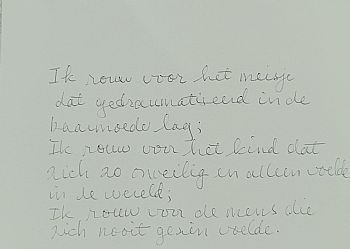 Ik rouw voor het meisje
dat gedraumatiseerd in de
baarmoede lag;
Ik rouw voor het kind dat
zich zo onveilig en alleen voelde
in de wereld;
Ik rouw voor de mens die
zich nooit gezien voelde.